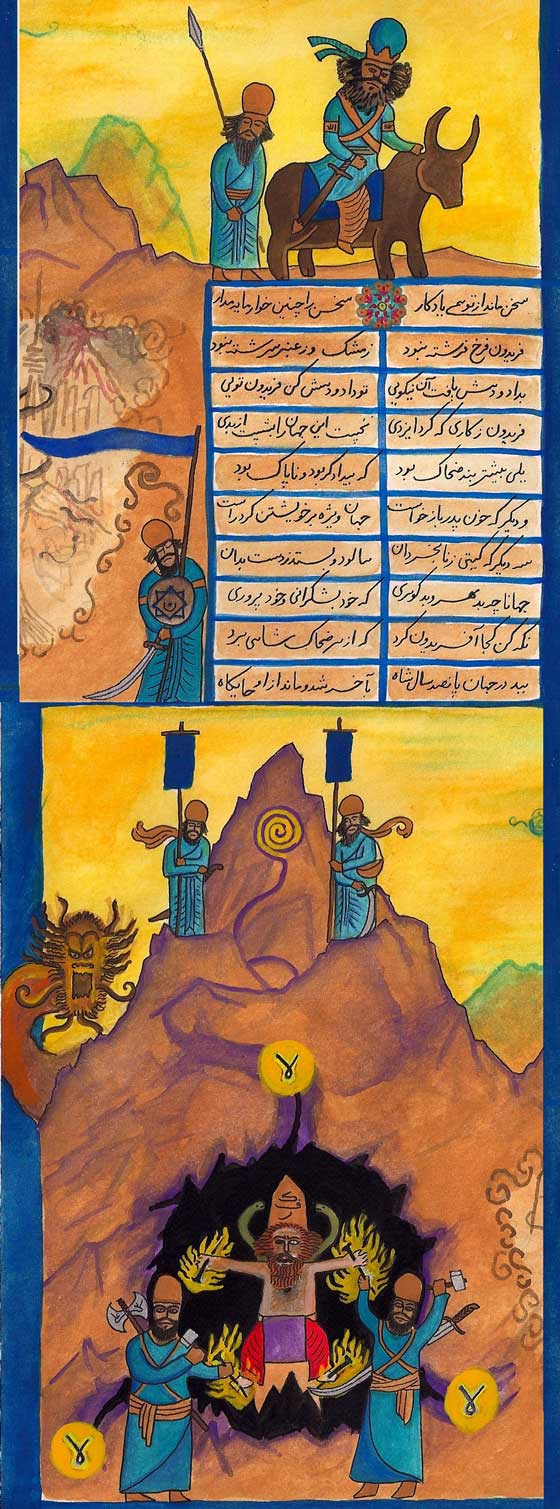 سخن ماند از تو همی یادگار سخن را چنین خوارمایه مدار
فریدون فرخ فرشته نبود ز مشک و ز عنبر سرشته نبود
بداد و دهش یافت آن نیکویی تو داد و دهش کن فریدون تویی
فریدون ز کاری که کرد ایزدی نخست این جهان را بشست از بدی
یکی پیشتر بند ضحاک بود که بیدادگر بود و ناپاک بود
و دیگر که خون پدر باز خواست جهان ویژه بر خویشتن کرد راست
سه دیگر که گیتی ز نابخردان بپالود و بستد ز دست بدان
جهانا چه بدمهر و بدگوهری که خود بشکرانی و خود پروری
نگه کن کجا آفریدون گرد که از پیر ضحاک شاهی ببرد
ببد در جهان پانصد سال شاه بآخر شد و ماند ازو جایگاه